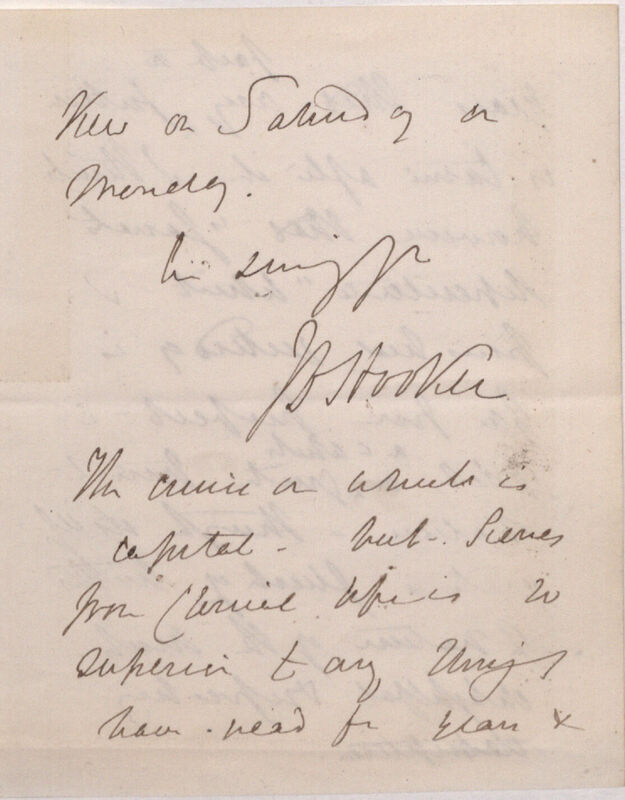 Kew on Saturday or
Monday.
Sincy yr
JDHooker
The cruise on wheels is
capital - but Scenes
from Clerical Life is so
superior to any thing I
have read for years &